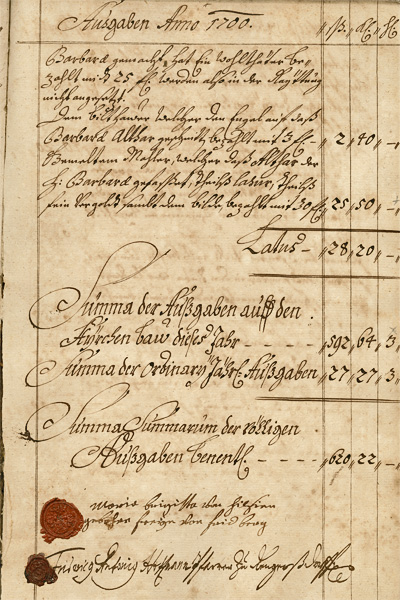 Ausgaben Anno 1700.
Barbaræ gemacht, hat ein wohlthäter be-
zahlt mit 25 fl. werden also in der Rayttung
nicht angesetzt.
Dem bilthauer welcher den Engel auf daß
Barbaræ Althar geschnitzt, bezahlt mit 3 fl. — 2 40 —
Benentem Mahler, welcher daß Althar der
H: Barbaræ gefasset, theilß lasur, theilß
fein vergold sambt dem bilde, bezahlt mit 30 fl. 25 50 —
Latus — 28 20 —
Summa der Außgaben auff den
Kyrchen bau dieses Jahr - - - - 592 64 3
Summa der Ordinary Jährl. Außgaben 27 27 3
Summa Summarum der völligen
Außgaben benentl. - - - - - 620 22 —
Maria
von